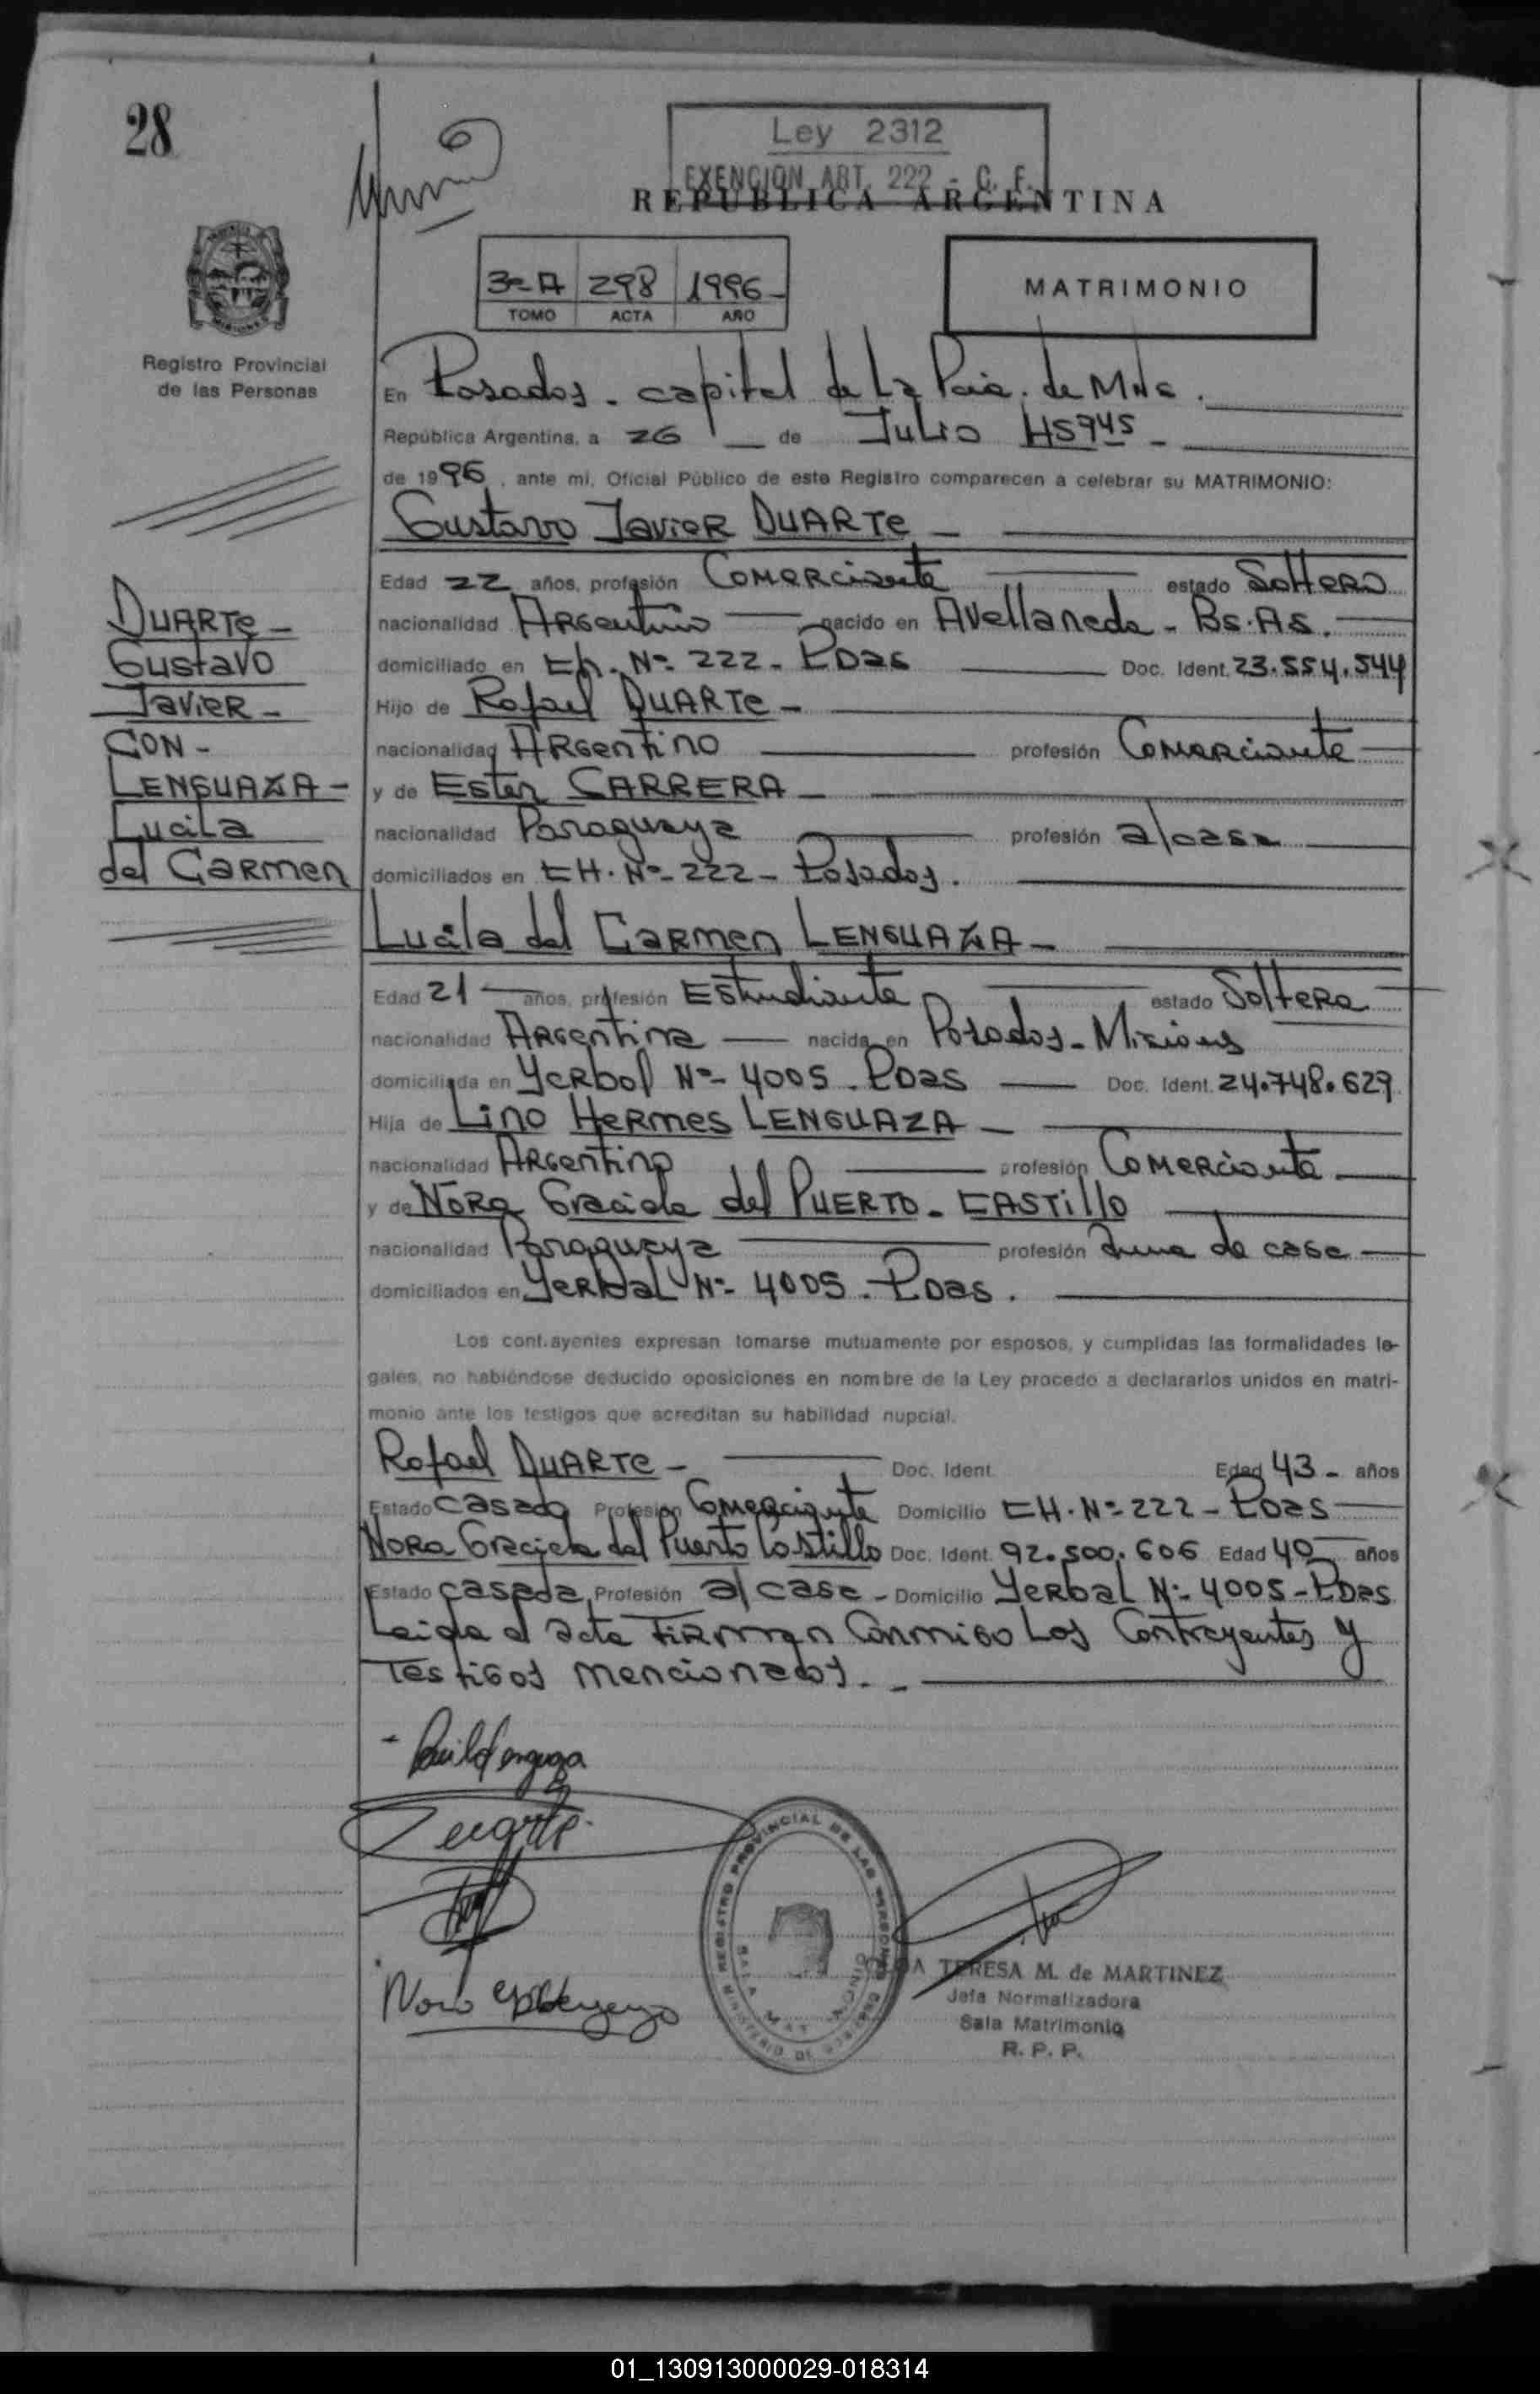 28
Ley 2312
EXENCION ART. 222 - C. F.
REPUBLICA ARGENTINA
3º A 298 1996
TOMO ACTA AÑO
MATRIMONIO
Registro Provincial
de las Personas
En Posadas. capital de La Pcia. de Mnes.
República Argentina, a 26 de Julio HS 9 45
de 1996, ante mi, Oficial Público de este Registro comparecen a celebrar su MATRIMONIO:
Gustavo Javier DUARTE
Edad 22 años, profesión Comerciante estado Soltero
nacionalidad Argentino nacido en Avellaneda - Bs. As.
domiciliado en Ch. Nº 222 - Pdas Doc. Ident. 23.554.544
Hijo de Rafael DUARTE
nacionalidad Argentino profesión Comerciante
y de Ester CARRERA
nacionalidad Paraguaya profesión a/casa
domiciliados en CH. Nº 222 - Posadas.
DUARTE
Gustavo
Javier
CON
LENGUAZA
Lucila
del Carmen
Lucila del Carmen LENGUAZA
Edad 21 años, profesión Estudiante estado Soltera
nacionalidad Argentina nacida en Posadas - Misiones
domiciliada en Yerbal Nº 4005 - Pdas Doc. Ident. 24.748.629
Hija de Lino Hermes LENGUAZA
nacionalidad Argentino profesión Comerciante
y de Nora Graciela del PUERTO - CASTILLO
nacionalidad Paraguaya profesión ama de casa
domiciliados en Yerbal Nº 4005 - Pdas.
Los contrayentes expresan tomarse mutuamente por esposos, y cumplidas las formalidades le-
gales, no habiéndose deducido oposiciones en nombre de la Ley procedo a declararlos unidos en matri-
monio ante los testigos que acreditan su habilidad nupcial.
Rafael DUARTE Doc. Ident. Edad 43 - años
Estado casado Profesión Comerciante Domicilio CH. Nº 222 - Pdas
Nora Graciela del Puerto Castillo Doc. Ident. 92.500.606 Edad 40 años
Estado casada Profesión a/casa - Domicilio Yerbal Nº 4005 - Pdas
Leida el acta Firman Conmigo Los Contrayentes y
Testigos mencionados.
REGISTRO PROVINCIAL DE LAS PERSONAS
TERESA M. de MARTINEZ
Jefa Normalizadora
Sala Matrimonio
R. P. P.
01_130913000029-018314